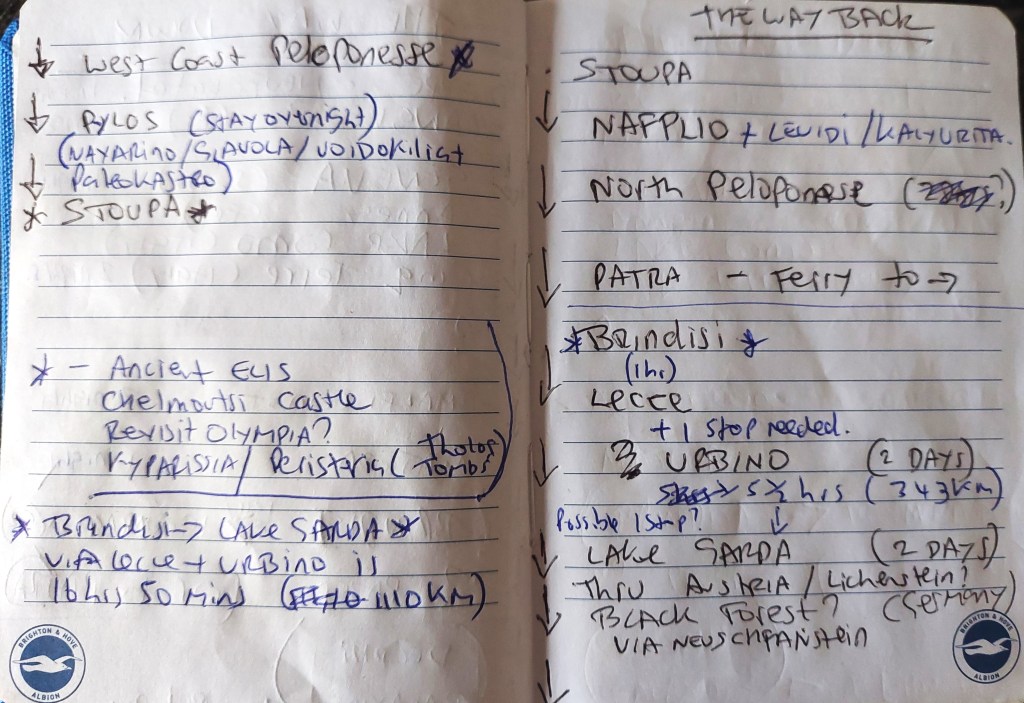 West Coast Peloponesse
PYLOS (STAY OVERNIGHT)
(NAVARINO/GIAVOLA/VOIDOKILIA+
PALEOKASTRO)
* STOUPA *
* - Ancient ELIS
Chelmoutsi Castle
Revisit OLYMPIA?
KYPARISSIA/ Peristeria (Tholos
Tombs)
* Brindisi → LAKE GARDA *
VIA Lecce + URBINO is
16 hrs 50 mins (1110 KM)
BRIGHTON & HOVE
ALBION
THE WAY BACK
STOUPA
NAFPLIO + LEVIDI/KALYVRITA.
North Peloponese ( ?)
PATRA - Ferry to →
*Brindisi *
(1hr)
Lecce
+ 1 stop needed.
URBINO (2 DAYS)
5½ hrs (343KM)
Possible 1 stop?
LAKE GARDA (2 DAYS)
Thru Austria / Lichenstein?
BLACK Forest? (Germany)
VIA NEUSCHPANSTEIN
BRIGHTON & HOVE
ALBION